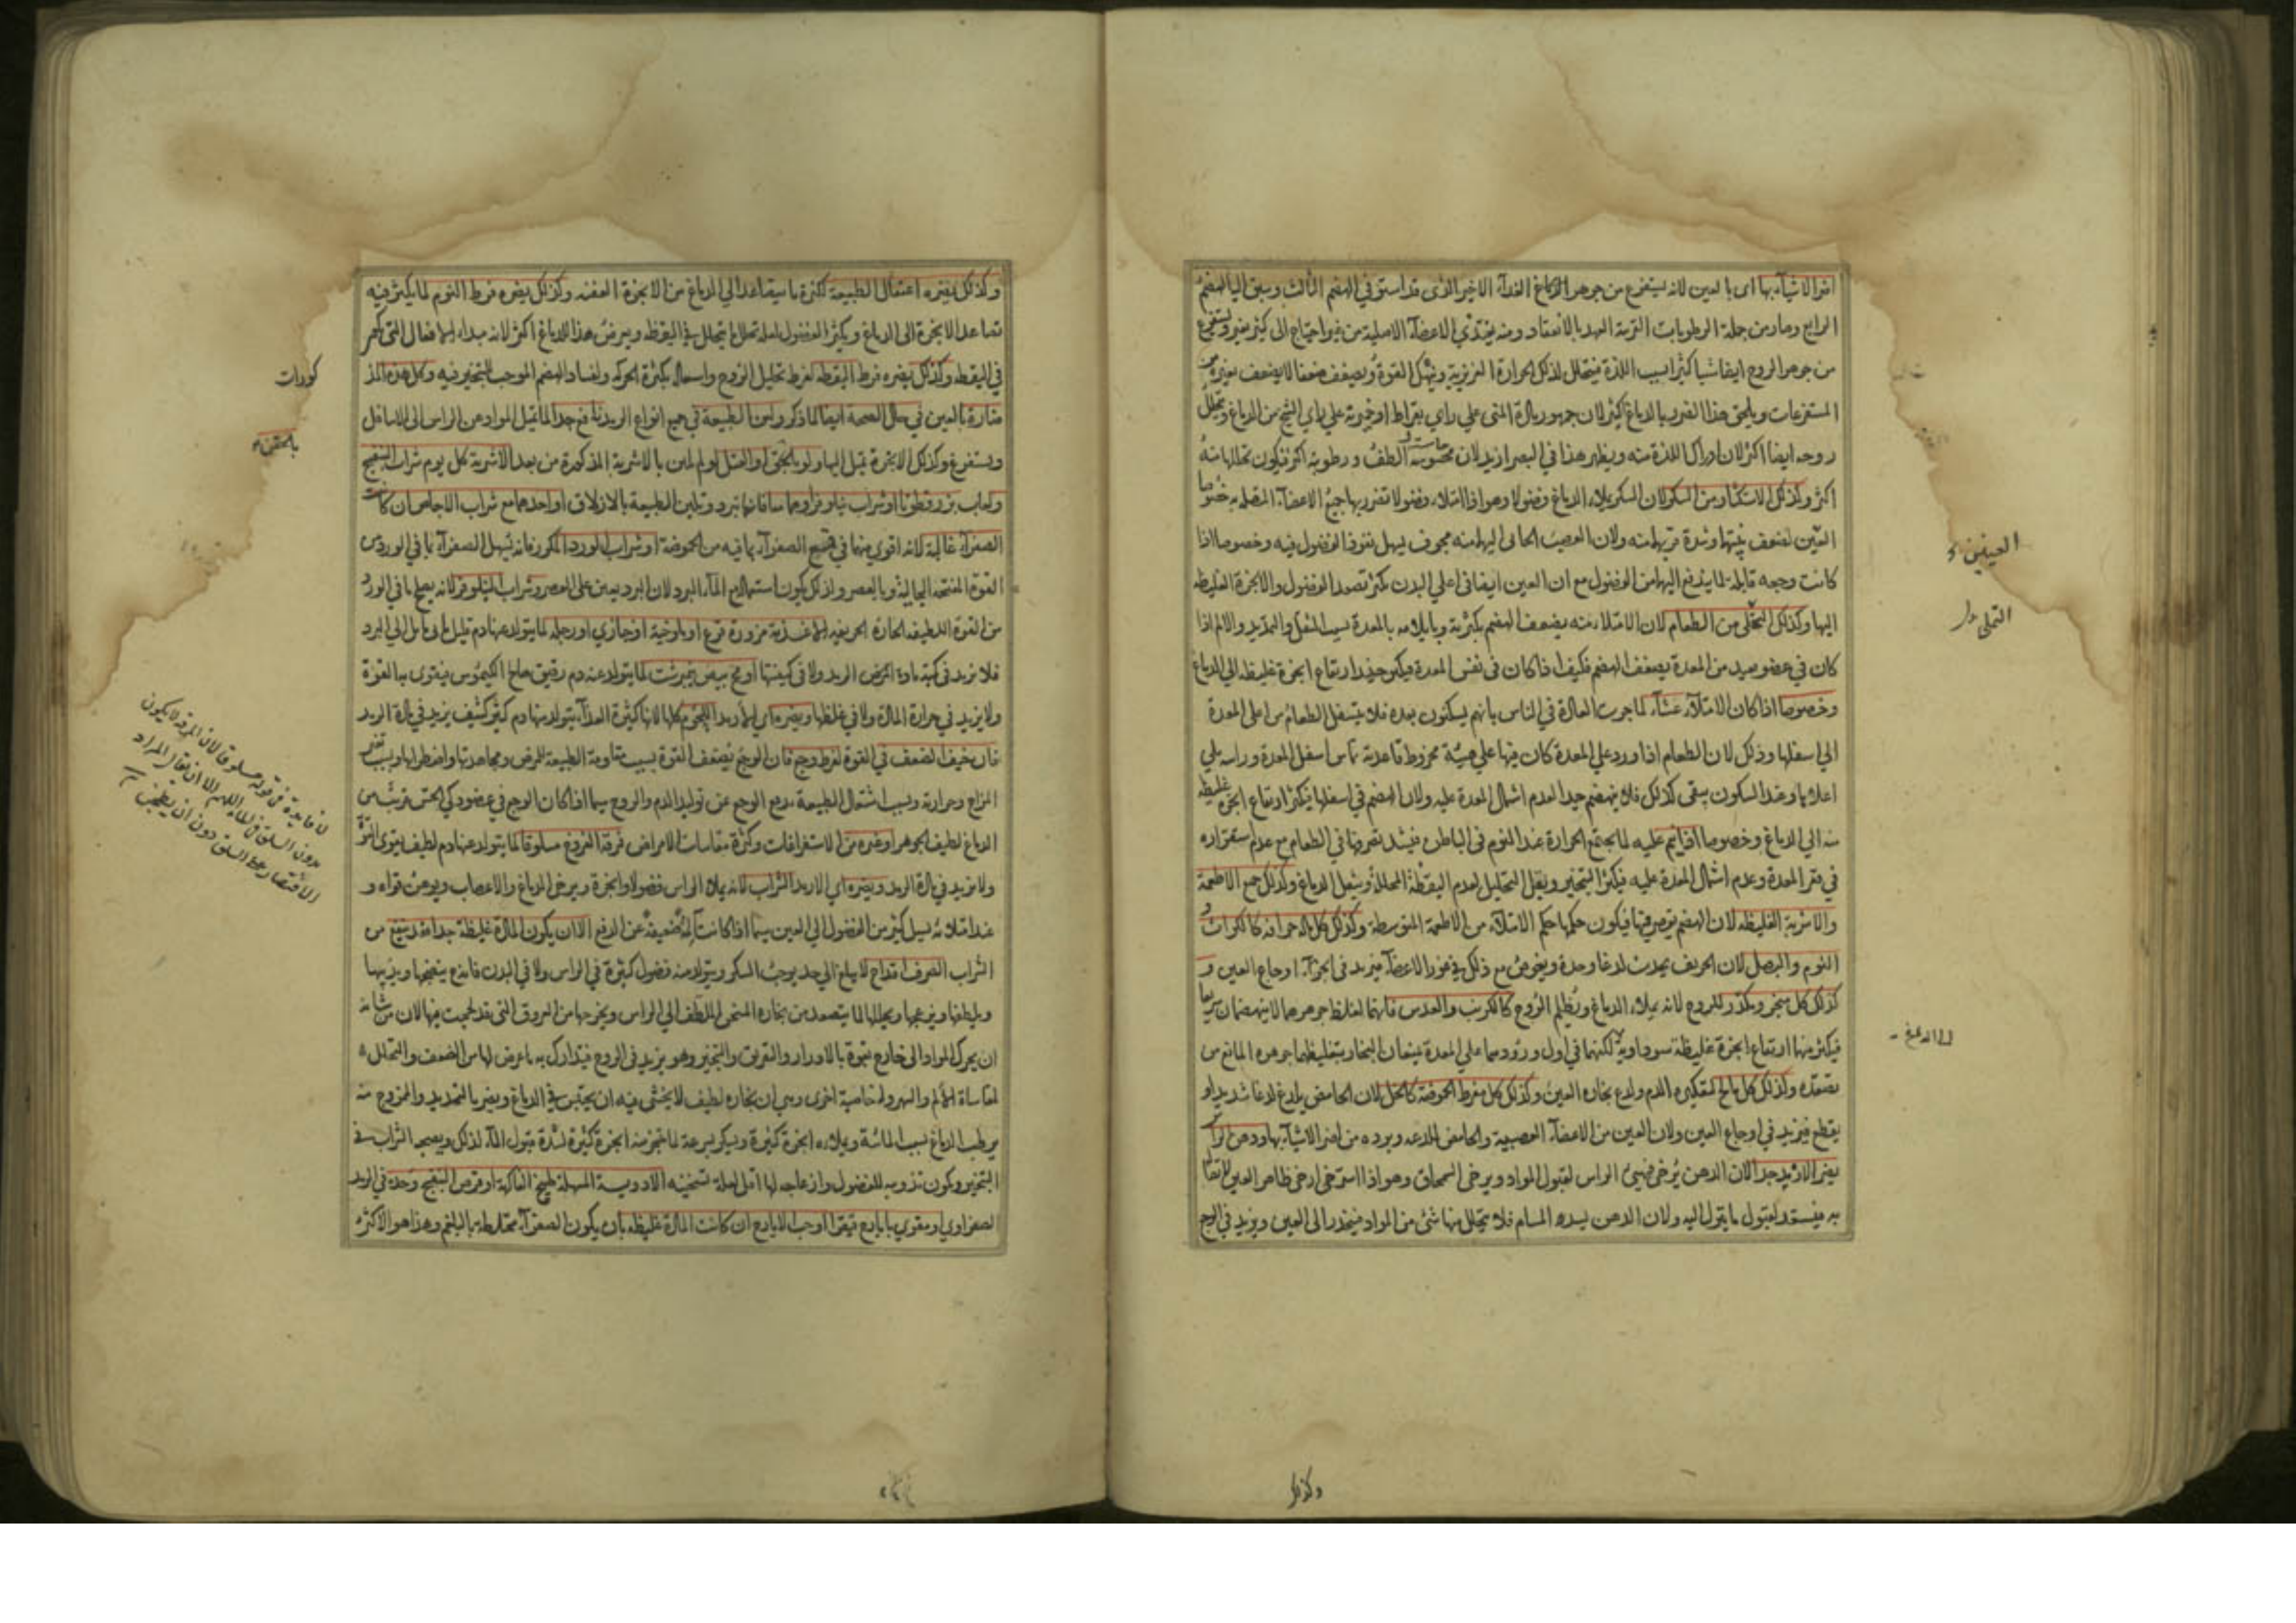 اضر الاشيآء بها اى بالعين لانه يستفرغ من جوهر الدماغ الغذآء الاخير الذى قد استوفي الهضم الثالث وسبق اليه الهضم
الرابع وصار من جملة الرطوبات القريبة العهد بالانعقاد ومنه يغتذي الاعضآء الاصلية من غير احتياج الى كثير تغير ويستفرغ
من جوهر الروح ايضا شيا كثيرا بسبب اللذة فيتحلل لذلك الحرارة الغريزية وينهك القوة ويضعف ضعفا لا يضعف بغيره من
المستفرغات ويلحق هذا الضرر بالدماغ اكثر لان جمهور مادة المنى علي راي بقراط او خميرته علي راي الشيخ من الدماغ ويتحلل
روحه ايضا اكثر لان ادراك اللذة منه ويظهر هذا في البصر ازيد لان الطف ورطوبته اكثر فيكون تحللها منه
اكثر وكذلك الاستكثار من السكر لان السكر يملاء الدماغ فضولا وهو اذا امتلاء فضولا تضرر بها جميع الاعضآء المتصلة به خصوصا
العين لضعف بنيتها وشدة قربها منه ولان العصب الجاى اليها منه مجوف يسهل نفوذ الفضول فيه وخصوصا اذا
كانت وجعه قابلة لما يندفع اليها من الفضول مع ان العين ايضا في اعلي البدن يكثر تصعد الفضول والابخرة الغليظة
اليها وكذلك التملى من الطعام لان الامتلاء منه يضعف الهضم بكثرته وبايلامه بالمعدة بسبب الثقل والتمديد والالم اذا
كان في عضو بعيد من المعدة يضعف الهضم فكيف اذا كان في نفس المعدة فيكثر حينئذ ارتفاع ابخرة غليظة الي الدماغ
وخصوصا اذا كان الامتلآء عشآء لما جرت العادة في الناس بانهم يسكنون بعده فلا يتسفل الطعام من اعلى المعدة
الي اسفلها وذلك لان الطعام اذا ورد علي المعدة كان فيها علي هيئة مخروط قاعدته تماس اسفل المعدة وراسه يلي
اعلاها وعند السكون يبقى كذلك فلا ينهضم جيدا لعدم اشتمال المعدة عليه ولان الهضم في اسفلها فيكثر ارتفاع ابخرة غليظة
منه الي الدماغ وخصوصا اذا نيم عليه لما يجتمع الحرارة عند النوم في الباطن فيشتد تصرفها في الطعام مع عدم استقراره
في قعر المعدة وعدم اشتمال المعدة عليه فيكثر التبخير ويقل التحليل لعدم اليقظة المحللة ويثقل الدماغ وكذلك جميع الاطعمة
والاشربة الغليظة لان الهضم يقصر فيها فيكون حكمها حكم الامتلآء من الاطعمة المتوسطة وكذلك كل ماله حرافة كالكراث و
الثوم والبصل لان الحريف يحدث لدغا وحدة ويغوص مع ذلك في غور الاعضآء فيزيد في اوجاع العين و
كذلك كل مبخر ومكدر للروح لانه يملاء الدماغ ويظلم الروح كالكرنب والعدس فانهما لغلظ جوهرهما لا ينهضمان سريعا
فيكثر منهما ارتفاع ابخرة غليظة سوداوية لكنهما في اول ورودهما علي المعدة يمنعان البخار بتغليظهما جوهره المانع من
تصعده وكذلك كل مالح لتعكيره الدم ولدع بخاره العين وكذلك كل مفرط الحموضة كالخل لان الحامض يلدغ لدغا شديدا و
يقطع فيزيد في اوجاع العين ولان العين من الاعضآء العصبية والحامض للدعه وبرده من اضر الاشيآء بها ودهن الراس
يضر الارمد جدا لان الدهن يرخي فيهيئ الراس لقبول المواد ويرخي السمحاق وهو اذا استرخي ارخي ظاهر العين لاتصالها
به فيستعد لقبول ما ينزل اليه ولان الدهن يسد المسام فلا يتحلل منها شئ من المواد فينحدر الى العين ويزيد في الوجع
العينين
التملى
الدماغ
وكذلك
وكذلك يضره اعتقال الطبيعة لكثرة ما يتصاعد الي الدماغ من الابخرة العفنة وكذلك يضره فرط النوم لما يكثر فيه
تصاعد الابخرة الى الدماغ ويكثر الفضول لعدم تحلل ما يتحلل في اليقظة ويعرض هذا للدماغ اكثر لانه مبداء للافعال التى
في اليقظة وكذلك يضره فرط اليقظة لفرط تحليل الروح واسهاله بكثرة الحركة ولفساد الهضم الموجب للتبخير فيه وكل هذه
ضارة بالعين في حال الصحة ايضا لما ذكر ولين الطبيعة في جميع انواع الرمد نافع جدا لما يميل المواد من الراس الى الاسافل
ويستفرغ وكذلك الابخرة تميل اليها ولو بالحقن او الفتل ولو لم يلن بالاشربة المذكورة من بعد الاشربة كل يوم شراب البنفسج
ولعاب بزرقطونا او شراب نيلوفر او هما معا فانهما تبرد وتلين الطبيعة بالازلاق او احدهما مع شراب الاجاص ان كانت
الصفرآء غالبة لانه اقوي منهما في قمع الصفرآء بما فيه من الحموضة او شراب الورد المكرر فانه يسهل الصفرآء بما في الورد من
القوة المنفتحة الجالية وبالعصر ولذلك يكون استعماله مع المآء البارد لان البرد يعين على العصر وشراب النيلوفر لانه يصلح ما في الورد
من القوة اللطيفة الحارة الحريفية الاغذية مزورة قرع او ملوخية او خبازي او رجلة لما يتولد عنها دم قليل مائل الي البرد
فلا يزيد في كمية مادة المرض الرمد ولا في كيفيتها او مح بيض نيمرشت لما يتولد عنه دم رقيق صالح الكيموس يتقوى به القوة
ولا يزيد في حرارة المادة ولا في غلظها ويضره اي الارمد اللحوم كلها لانها كثيرة الغذآء يتولد منها دم كثير كثيف يزيد في مادة الرمد
فان خيف الضعف في القوة لفرط وجع فان الوجع يضعف القوة بسبب مقاومة الطبيعة للمرض ومجاهدتها واضطرابها وبسبب تغير
المزاج وحرارة وبسبب اشتغال الطبيعة بدفع الوجع عن توليد الدم والروح سيما اذا كان الوجع في عضو ذكي الحس قريب من
الدماغ لطيف الجوهر او غيره من الاستفراغات وكثرة مقاسات الامراض فمرقة الفروج مسلوقا لما يتولد عنها دم لطيف يقوى القوة
ولا يزيد في مادة الرمد ويضره اي الارمد الشراب لانه يملاء الراس فضولا وابخرة ويرخي الدماغ والاعصاب ويوهن قواه و
عند امتلائه يسيل كثير من الفضول الي العين سيما اذا كانت ضعيفة عن الدفع الا ان يكون المادة غليظة جدا فقد ينتفع من
الشراب الصرف اقداح لا يبلغ الي حد يوجب السكر ويتولد منه فضول كثيرة في الراس ولا في البدن فانه ينضجها ويذيبها
ويلطفها ويزعجها ويحللها لما يتصعد من بخاره المسخن الملطف الي الراس ويخرجها من العروق التى قد لحجت فيها لان من شانه
ان يحرك المواد الى خارج بقوة بالادرار والتعريق والتبخير وهو يزيد في الروح فيتدارك به ما عرض لها من الضعف والتحلل
لمقاساة الالم والسهر وله خاصية اخرى وهي ان بخاره لطيف لا يخشى فيه ان يحتبس في الدماغ ويضر بالتمديد والممزوج منه
يرطب الدماغ بسبب المائية ويملاءه ابخرة كثيرة ويسكر بسرعة لما يتبخر منه ابخرة كثيرة لشدة قبول المآء لذلك ويصحبه الشراب في
التبخير ويكون تذويبه للفضول وازعاجه لها اقل لقلة تسخينه الادوية المسهلة طبيخ الفاكهة او قرص البنفسج وحده في الرمد
الصفراوي او مقوي بايارج فيقرا او حب الايارج ان كانت المادة غليظة بان يكون الصفرآء مختلطة بالبلغم وهذا هو الاكثر
كورات
بالحقنه
لا فايدة في قوله مسلوقا لان المرقة لا يكون
بدون السلق في المآء اللهم الا ان يقال المراد
الاقتصار على السلق دون ان يطجن